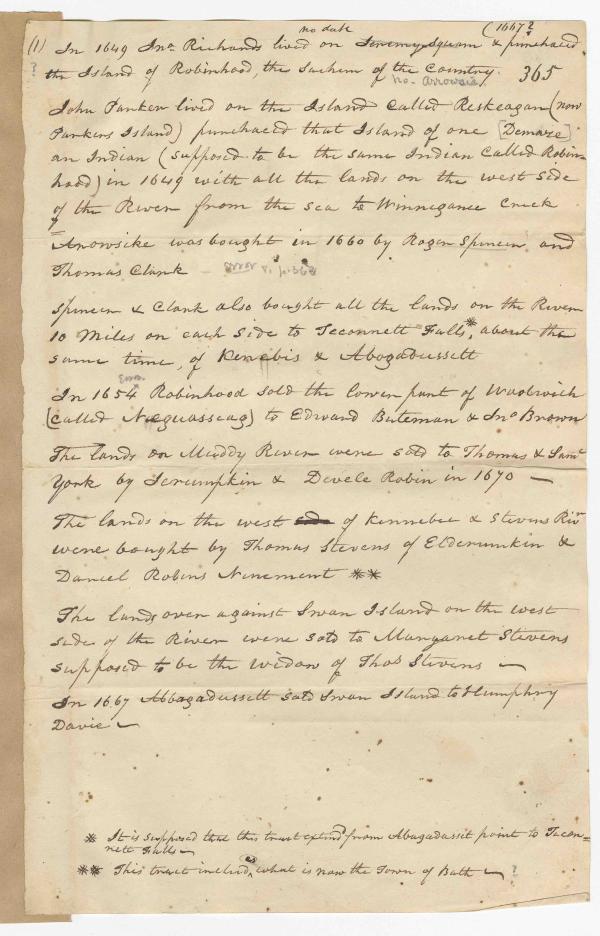 no date (1667?
(1) In 1649 Jno Richards lived on Jeremysquam & purchaced
? the Island of Robinhood, the Sachem of the Country. 365
no. Arrowsic
John Parker lived on the Island called Reskeagan (now
Parkers Island) purchaced that Island of one [Demaze]
an Indian (supposed to be the same Indian called Robin-
hood) in 1649 with all the lands on the west side
of the River from the sea to Winnegance Creek
Arrowsike was bought in 1660 by Roger Spencer and
Thomas Clark error v. p. 368
Spencer & Clark also bought all the lands on the River
10 Miles on each side to Teconnett Falls*, about the
same time, of Kenebis & Abagadussett
Error
In 1654 Robinhood sold the lower part of Woolwich
(called Neguasseag) to Edward Bateman & Jno Brown
The lands on Muddy River were sold to Thomas & Saml
York by Scrumpkin & Devele Robin in 1670 —
The lands on the west side of Kennebec & Stevens Rivr
were bought by Thomas Stevens of Elderumkin &
Daniel Robins Ninement **
The lands over against Swan Island on the west
side of the River were sold to Margaret Stevens
supposed to be the widow of Thos Stevens —
In 1667 Abbagadussett sold Swan Island to Humphry
Davie —
* It is supposed that this tract extend from Abagadassit point to Tacon=
nett Falls —
** This tract includ what is now the Town of Bath — ?